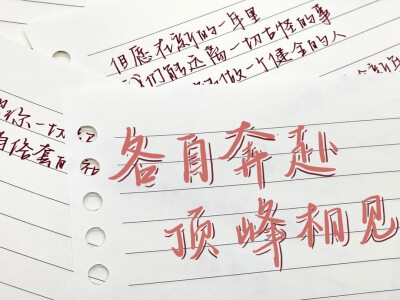 但愿在新的一年里
我们能远离一切古怪的事
做一个健全的人
你一切
俗套
各自奔赴
顶峰相见